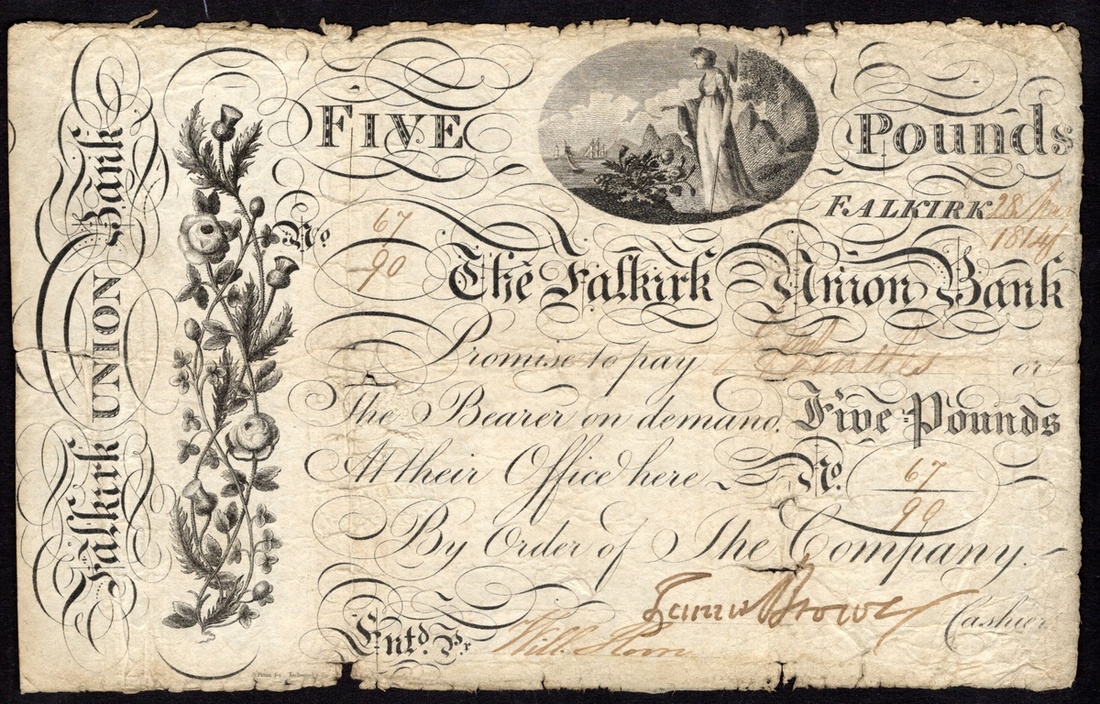 Falkirk UNION Bank
FIVE Pounds
FALKIRK 28
1814
No. 67
90
The Falkirk Union Bank
Promise to pay or
The Bearer on demand Five Pounds
At their Office here No. 67
90
By Order of The Company.
Cashier
Entd. Pr. Will.